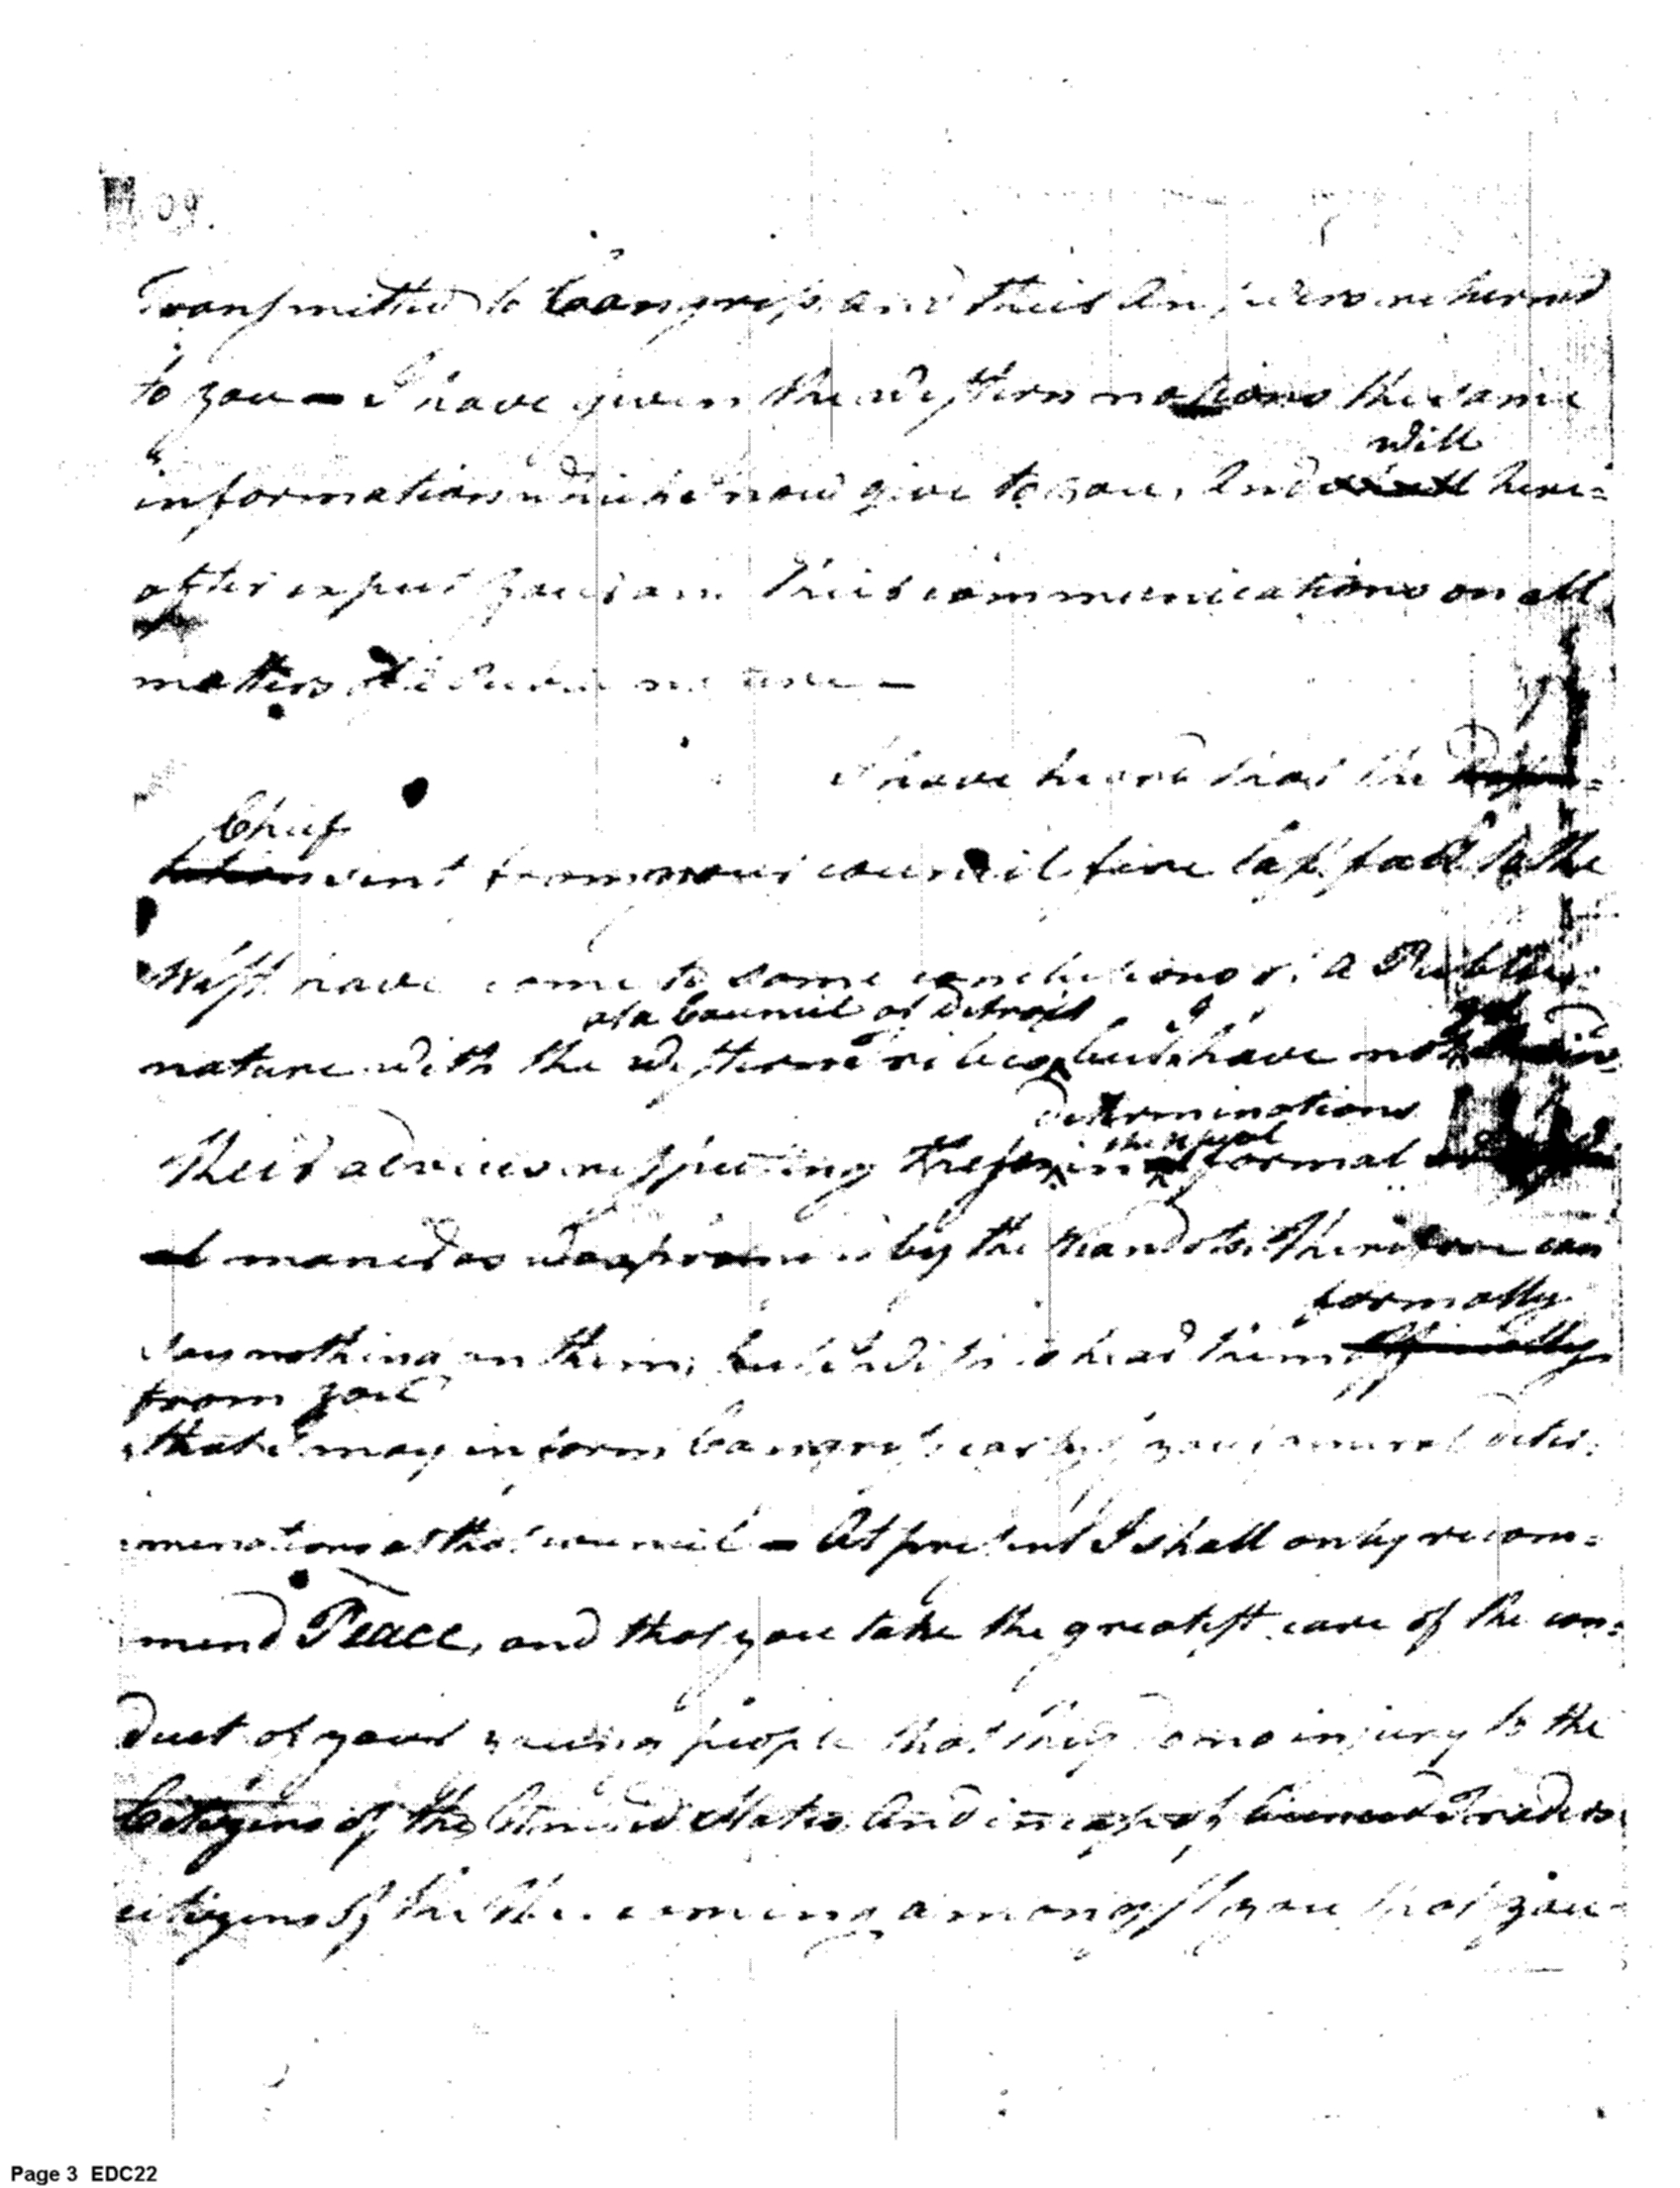 09.
Transmitted to Congress, and their Answers returned
to you – I have given the western nations the same
will
information which I now give to you, And here=
after expect your communications on all
matters
I have heard that the
Chief
sent from your council fire last fall to the
West have come to some conclusions of a Public
at a Council at Detroit
nature with the western tribes, but I have not
determinations
the usual
their advices respecting these in formal
manner as was promised by the Wiandots. Therefore can
formally
say nothing on them, but I wish to hear them
from you
that I may inform Congress early your general deter=
minations at that council – At present I shall only recom=
mend Peace, and that you take the greatest care of the con=
duct of your young people that they do no injury to the
Citizens of the United States And in case of licenced Traders
citizens of the coming amongst you that you
Page 3 EDC22